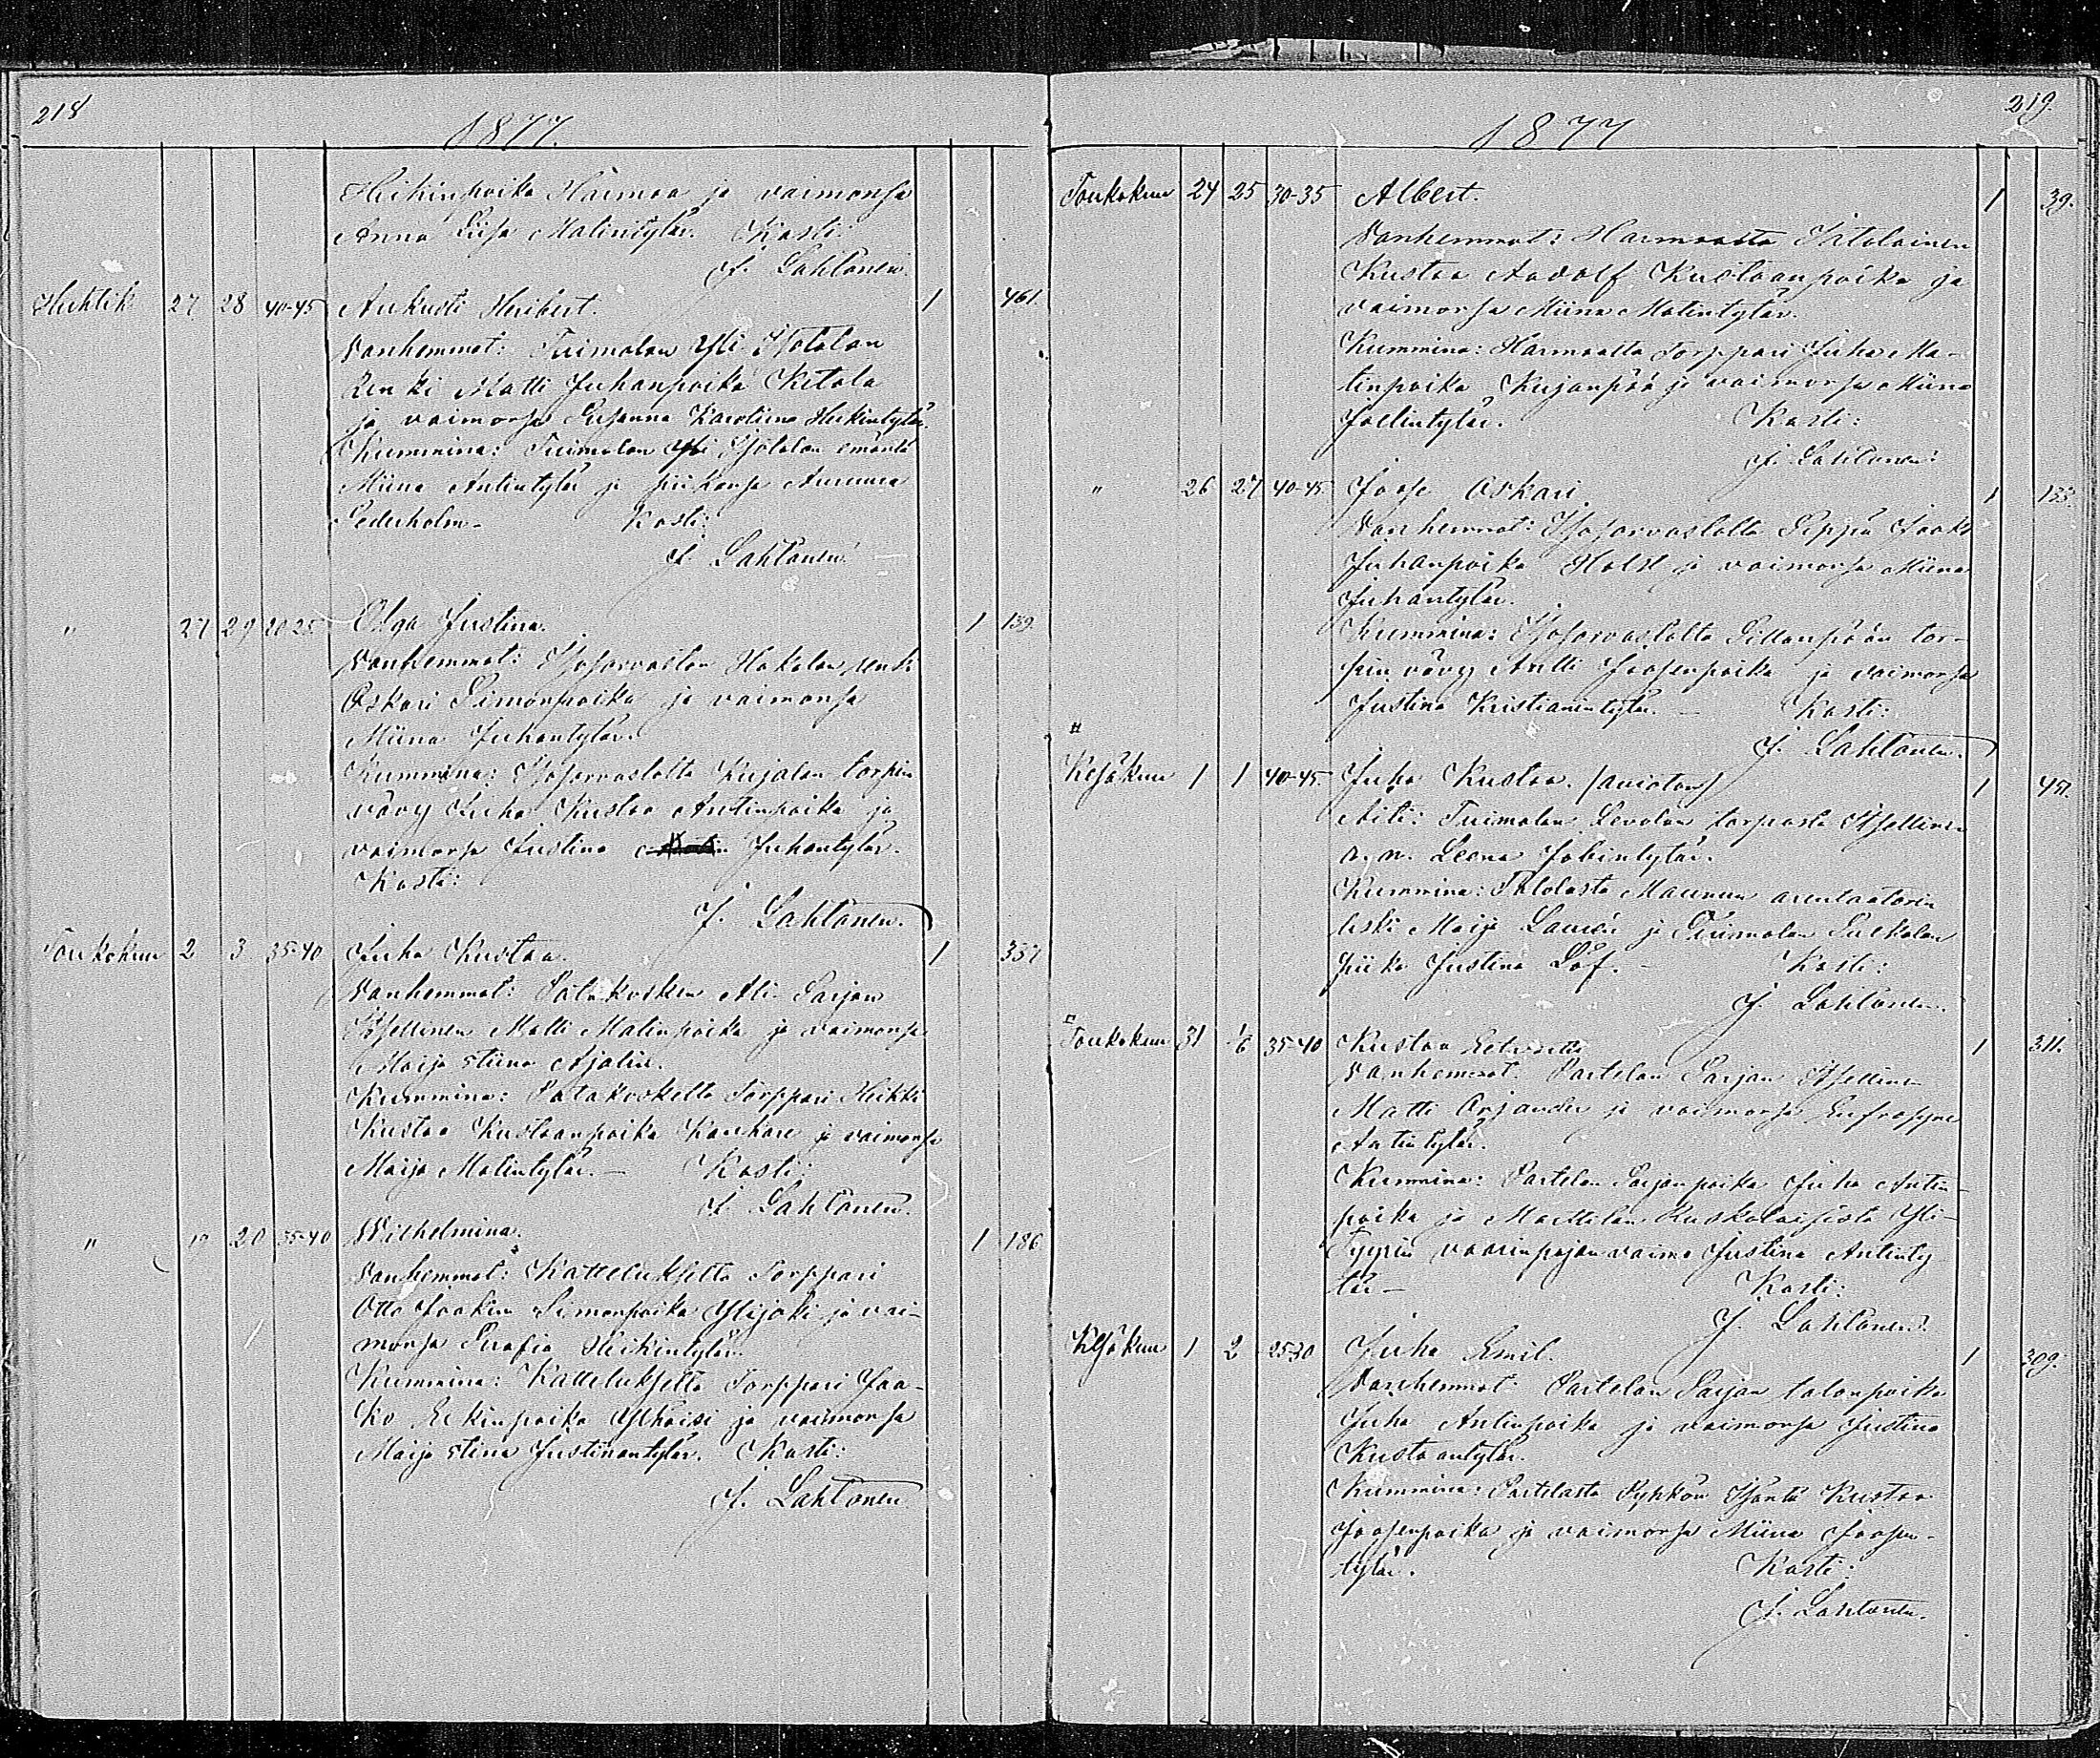 218
1877.
Heikinpoika Haimoo ja vaimonsa
Anna Liisa Matintytär. Kasti:
J. Lahtonen.
Huhtik 27 28 40-45 Aukusti Heribert. 1 461.
Vanhemmat: Tuimalan Yli
Renki Matti Juhanpoika Ketola
ja vaimonsa Susanna Karoliina Heikintytär.
Kummina: Tuimalan Yli emäntä
Miina Antintytär ja piikansa
Sederholm - Kasti:
J. Lahtonen
" 27 29 20-25 Olga Justina. 1 139.
Vanhemmat: Hakalan renki
Oskari Simonpoika ja vaimonsa
Miina Juhantytär.
Kummina: Kujalan torpin
vävy Juha Kustaa Antinpoika ja
vaimonsa Justina Juhantytär.
Kasti:
J. Lahtonen.
Toukokuu 2 3 35-40 Juha Kustaa. 1 357
Vanhemmat: Patakosken Ali Sarjan
Itsellinen Matti Matinpoika ja vaimonsa
Maija Stiina
Kummina: Patakoskelta Torppari Heikki
Kustaa Kustaanpoika Kankare ja vaimonsa
Maija Matintytär. - Kasti:
J. Lahtonen.
" 20 35-40 Wilhelmina. 1 186
Vanhemmat: Kattelukselta Torppari
Otto Joakim Simonpoika Ylijoki ja vai-
monsa Serafia Heikintytär.
Kummina: Kattelukselta Torppari Jaa-
ko Erkinpoika Ylhäisi ja vaimonsa
Maija Stina Justinantytär. Kasti:
J. Lahtonen
219.
1877
Toukokuu 24 25 30-35 Albert. 1 39.
Vanhemmat: Harmaasta Itätolainen
Kustaa Aadolf Kustaanpoika ja
vaimonsa Miina Matintytär.
Kummina: Harmaalta Torppari Juha Ma-
tinpoika Kujanpää ja vaimonsa Miina
Kasti:
J. Lahtonen.
" 26 27 40-45 Joose Oskari. 1
Vanhemmat: Seppä Jaako
Juhanpoika Holst ja vaimonsa Miina
Juhantytär.
Kummina: Sillanpään tor-
pin vävy Antti Joosenpoika ja vaimonsa
Justina Kristianintytär. - Kasti:
J. Lahtonen.
Kesäkuu 1 1 40-45 Juha Kustaa. (aviotoin) 1 451.
Äiti: Tuimalan Levolan torpasta Itsellinen
n. n. Leena Jobintytär.
Kummina: Talolasta Maunun arentaatorin
leski Maija Laurén ja Tuimalan
piika Justina Löf. - Kasti:
J. Lahtonen.
Toukokuu 31 1/6 35-40 Kustaa 1 311.
Vanhemmat: Partelan Sarjan Itsellinen
Matti Orjander ja vaimonsa Eufrosyne
Antintytär.
Kummina: Partelan Sarjan poika Juha Antin-
poika ja Marttilan Ruskolaisista Yli-
Tyyrin vaarinpojan vaimo Justina Antinty-
tär - Kasti:
J. Lahtonen.
Kesäkuu 1 2 25-30 Juha Emil. 1 309.
Vanhemmat: Partelan Sarjan talonpoika
Juha Antinpoika ja vaimonsa Justina
Kustaantytär.
Kummina: Partelasta Pyhkön Isäntä Kustaa
Joosenpoika ja vaimonsa Miina Joosen-
tytär. Kasti:
J. Lahtonen.